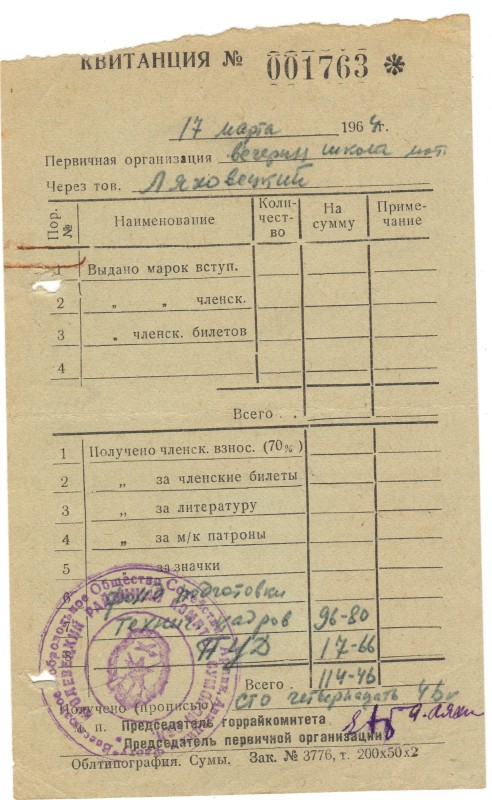 КВИТАНЦИЯ № 001763 *
17 марта 1964 г.
Первичная организация вечерн школа
Через тов. Ляховецкий
Пор. № Наименование Количество На сумму Примечание
1 Выдано марок вступ.
2 „ „ членск.
3 „ членск. билетов
4
Всего . .
1 Получено членск. взнос. (70%)
2 „ за членские билеты
3 „ за литературу
4 „ за м/к патроны
5 за значки
6 подготовки
технич кадров 96-80
ПУД 17-66
Всего . 114-46
Получено (прописью) сто четырнадцать 46 к
п. Председатель горрайкомитета
Председатель первичной организации
Облтипография. Сумы. Зак. № 3776, т. 200х50х2